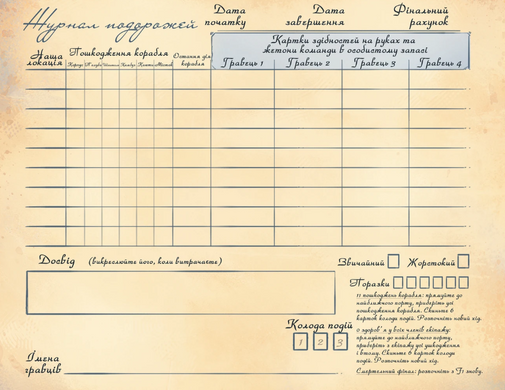 Журнал подорожей
Дата початку
Дата завершення
Фінальний рахунок
Картки здібностей на руках та
жетони команди в особистому запасі
Наша локація
Пошкодження корабля
Остання дія корабля
Гравець 1 Гравець 2 Гравець 3 Гравець 4
Досвід (викреслюйте його, коли витрачаєте)
Звичайний Жорстокий
Поразки
11 пошкоджень корабля: прямуйте до
найближчого порту, приберіть усі
пошкодження корабля. Скиньте 6
карток колоди подій. Розпочніть новий хід.
0 здоров'я у всіх членів екіпажу:
прямуйте до найближчого порту,
приберіть з екіпажу усі ушкодження
і втому. Скиньте 6 карток колоди
подій. Розпочніть новий хід.
Смертельний фінал: розпочніть з
Колода подій
1 2 3
Імена
гравців